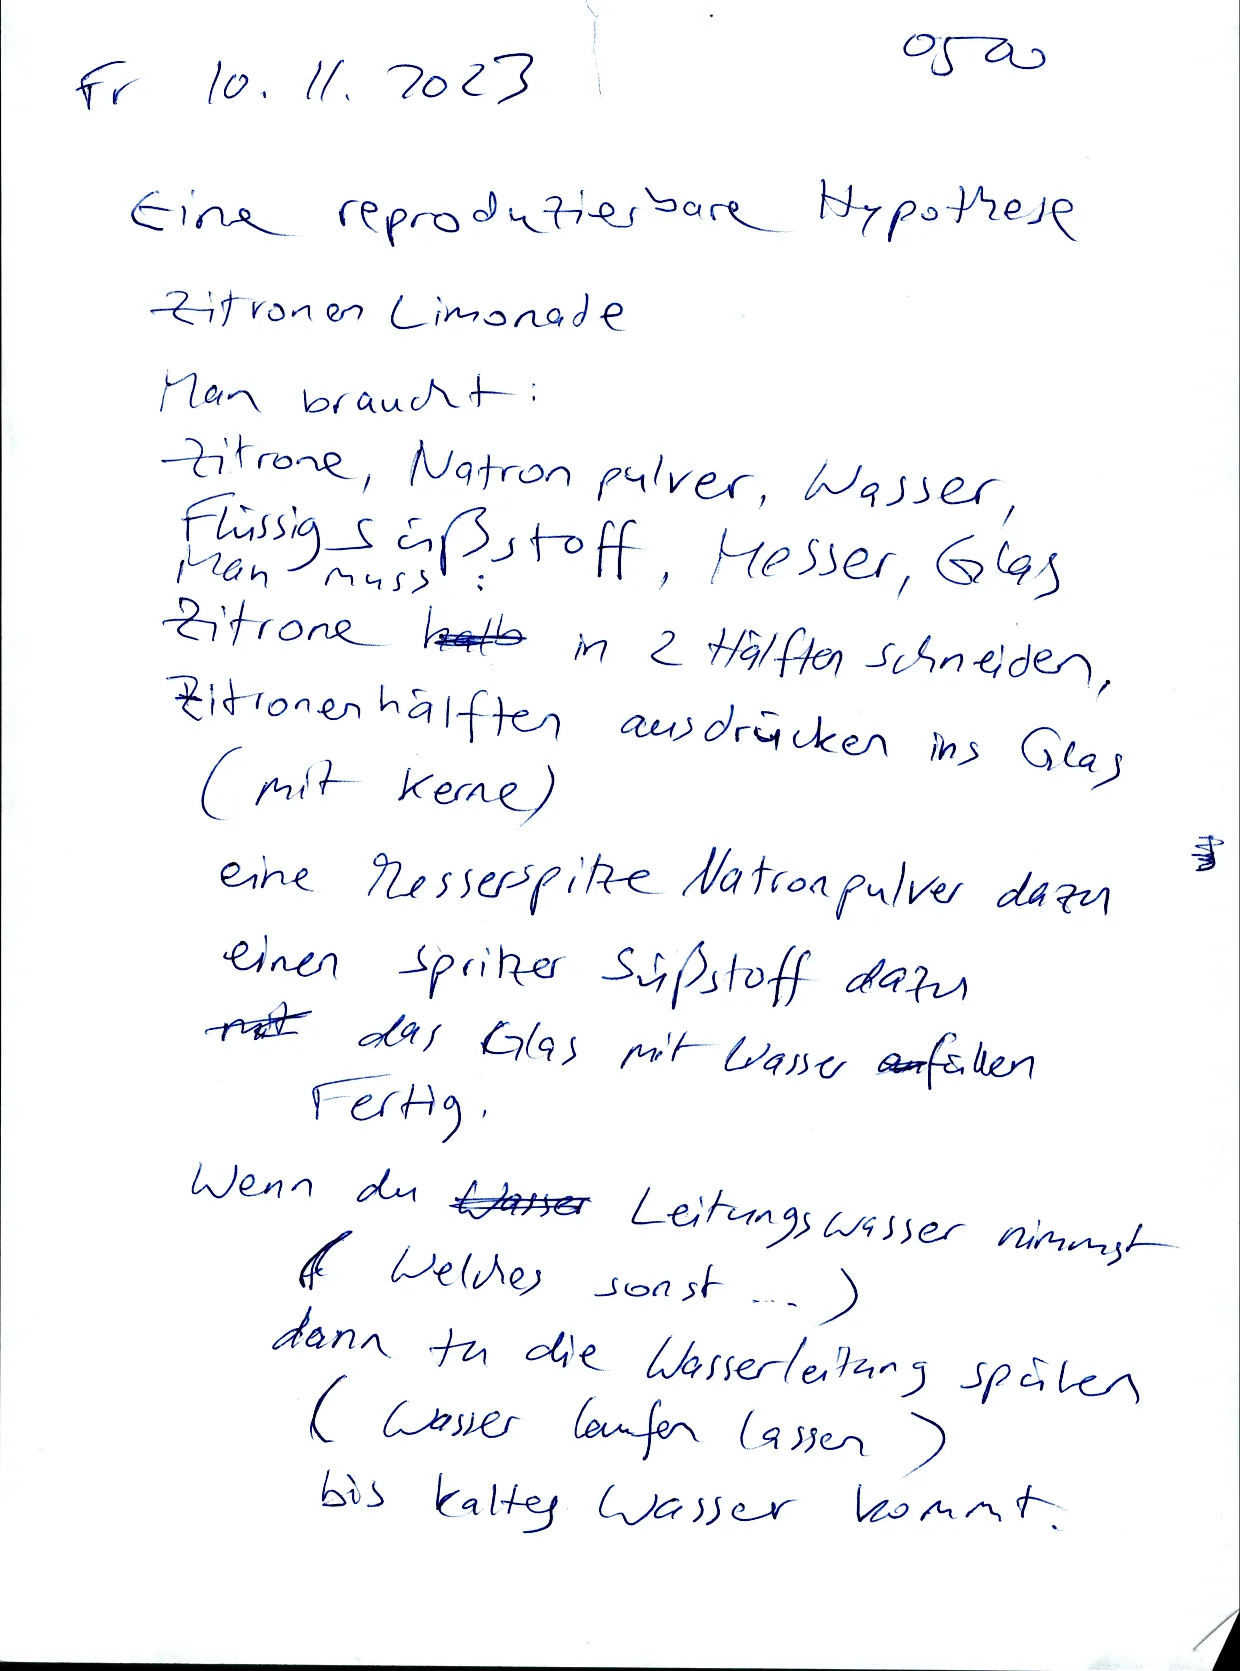 Fr 10. 11. 2023 0500
Eine reproduzierbare Hypothese
Zitronen Limonade
Man braucht:
Zitrone, Natron pulver, Wasser,
Flüssig Süßstoff, Messer, Glas
Man muss:
Zitrone halb in 2 Hälften schneiden,
Zitronenhälften ausdrücken ins Glas
(mit Kerne)
eine Messerspitze Natronpulver dazu
einen Spritzer Süßstoff dazu
mit das Glas mit Wasser anfüllen
Fertig.
Wenn du Wasser Leitungswasser nimmst
(Welches sonst ....)
dann tu die Wasserleitung spülen
(Wasser laufen lassen)
bis kaltes Wasser kommt.